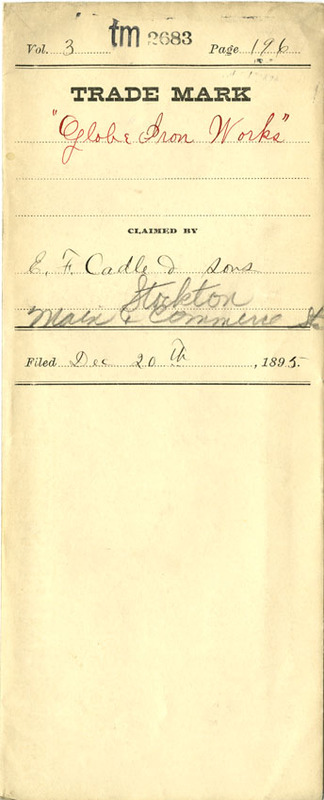 Vol. 3 tm 2683 Page 196
TRADE MARK
"Globe Iron Works"
CLAIMED BY
E. F. Cadle & sons
Stockton
Main & Commerce St.
Filed Dec 20th, 1895.